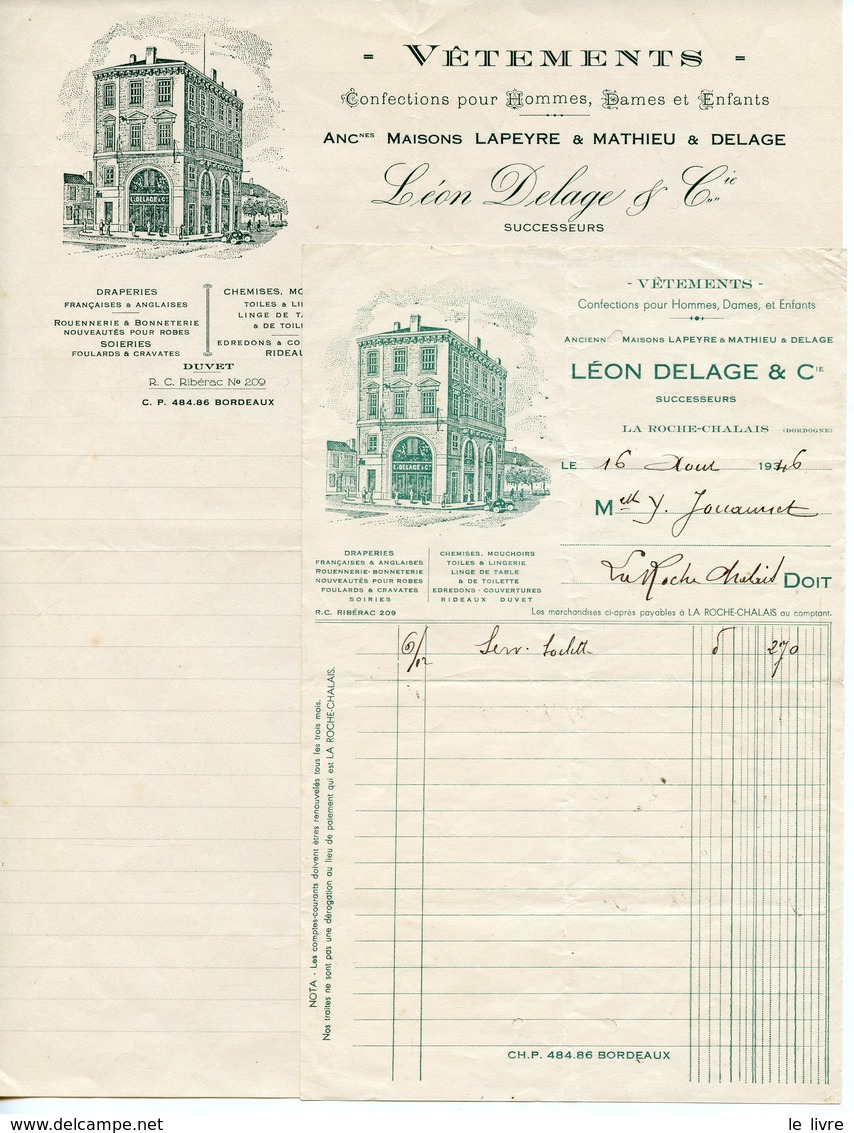 - VÊTEMENTS -
Confections pour Hommes, Dames et Enfants
ANCNES MAISONS LAPEYRE & MATHIEU & DELAGE
Léon Delage & Cie
SUCCESSEURS
L. DELAGE & Cie
DRAPERIES
FRANÇAISES & ANGLAISES
ROUENNERIE & BONNETERIE
NOUVEAUTÉS POUR ROBES
SOIERIES
FOULARDS & CRAVATES
CHEMISES, MO
TOILES & LI
LINGE DE TA
& DE TOILE
EDREDONS & CO
RIDEAU
DUVET
R. C. Ribérac No 209
C. P. 484.86 BORDEAUX
- VÊTEMENTS -
Confections pour Hommes, Dames, et Enfants
ANCIENN MAISONS LAPEYRE & MATHIEU & DELAGE
LÉON DELAGE & CIE
SUCCESSEURS
LA ROCHE-CHALAIS (DORDOGNE)
L. DELAGE & Cie
LE 16 Aout 1946
Melle Y.
La Roche Chalais DOIT
DRAPERIES
FRANÇAISES & ANGLAISES
ROUENNERIE-BONNETERIE
NOUVEAUTÉS POUR ROBES
FOULARDS & CRAVATES
SOIRIES
CHEMISES, MOUCHOIRS
TOILES & LINGERIE
LINGE DE TABLE
& DE TOILETTE
EDREDONS-COUVERTURES
RIDEAUX DUVET
R.C. RIBÉRAC 209
Les marchandises ci-après payables à LA ROCHE-CHALAIS au comptant.
6/12 Serv. 270
NOTA - Les comptes-courants doivent êtres renouvelés tous les trois mois.
Nos traites ne sont pas une dérogation au lieu de paiement qui est LA ROCHE-CHALAIS.
CH.P. 484.86 BORDEAUX
le livre